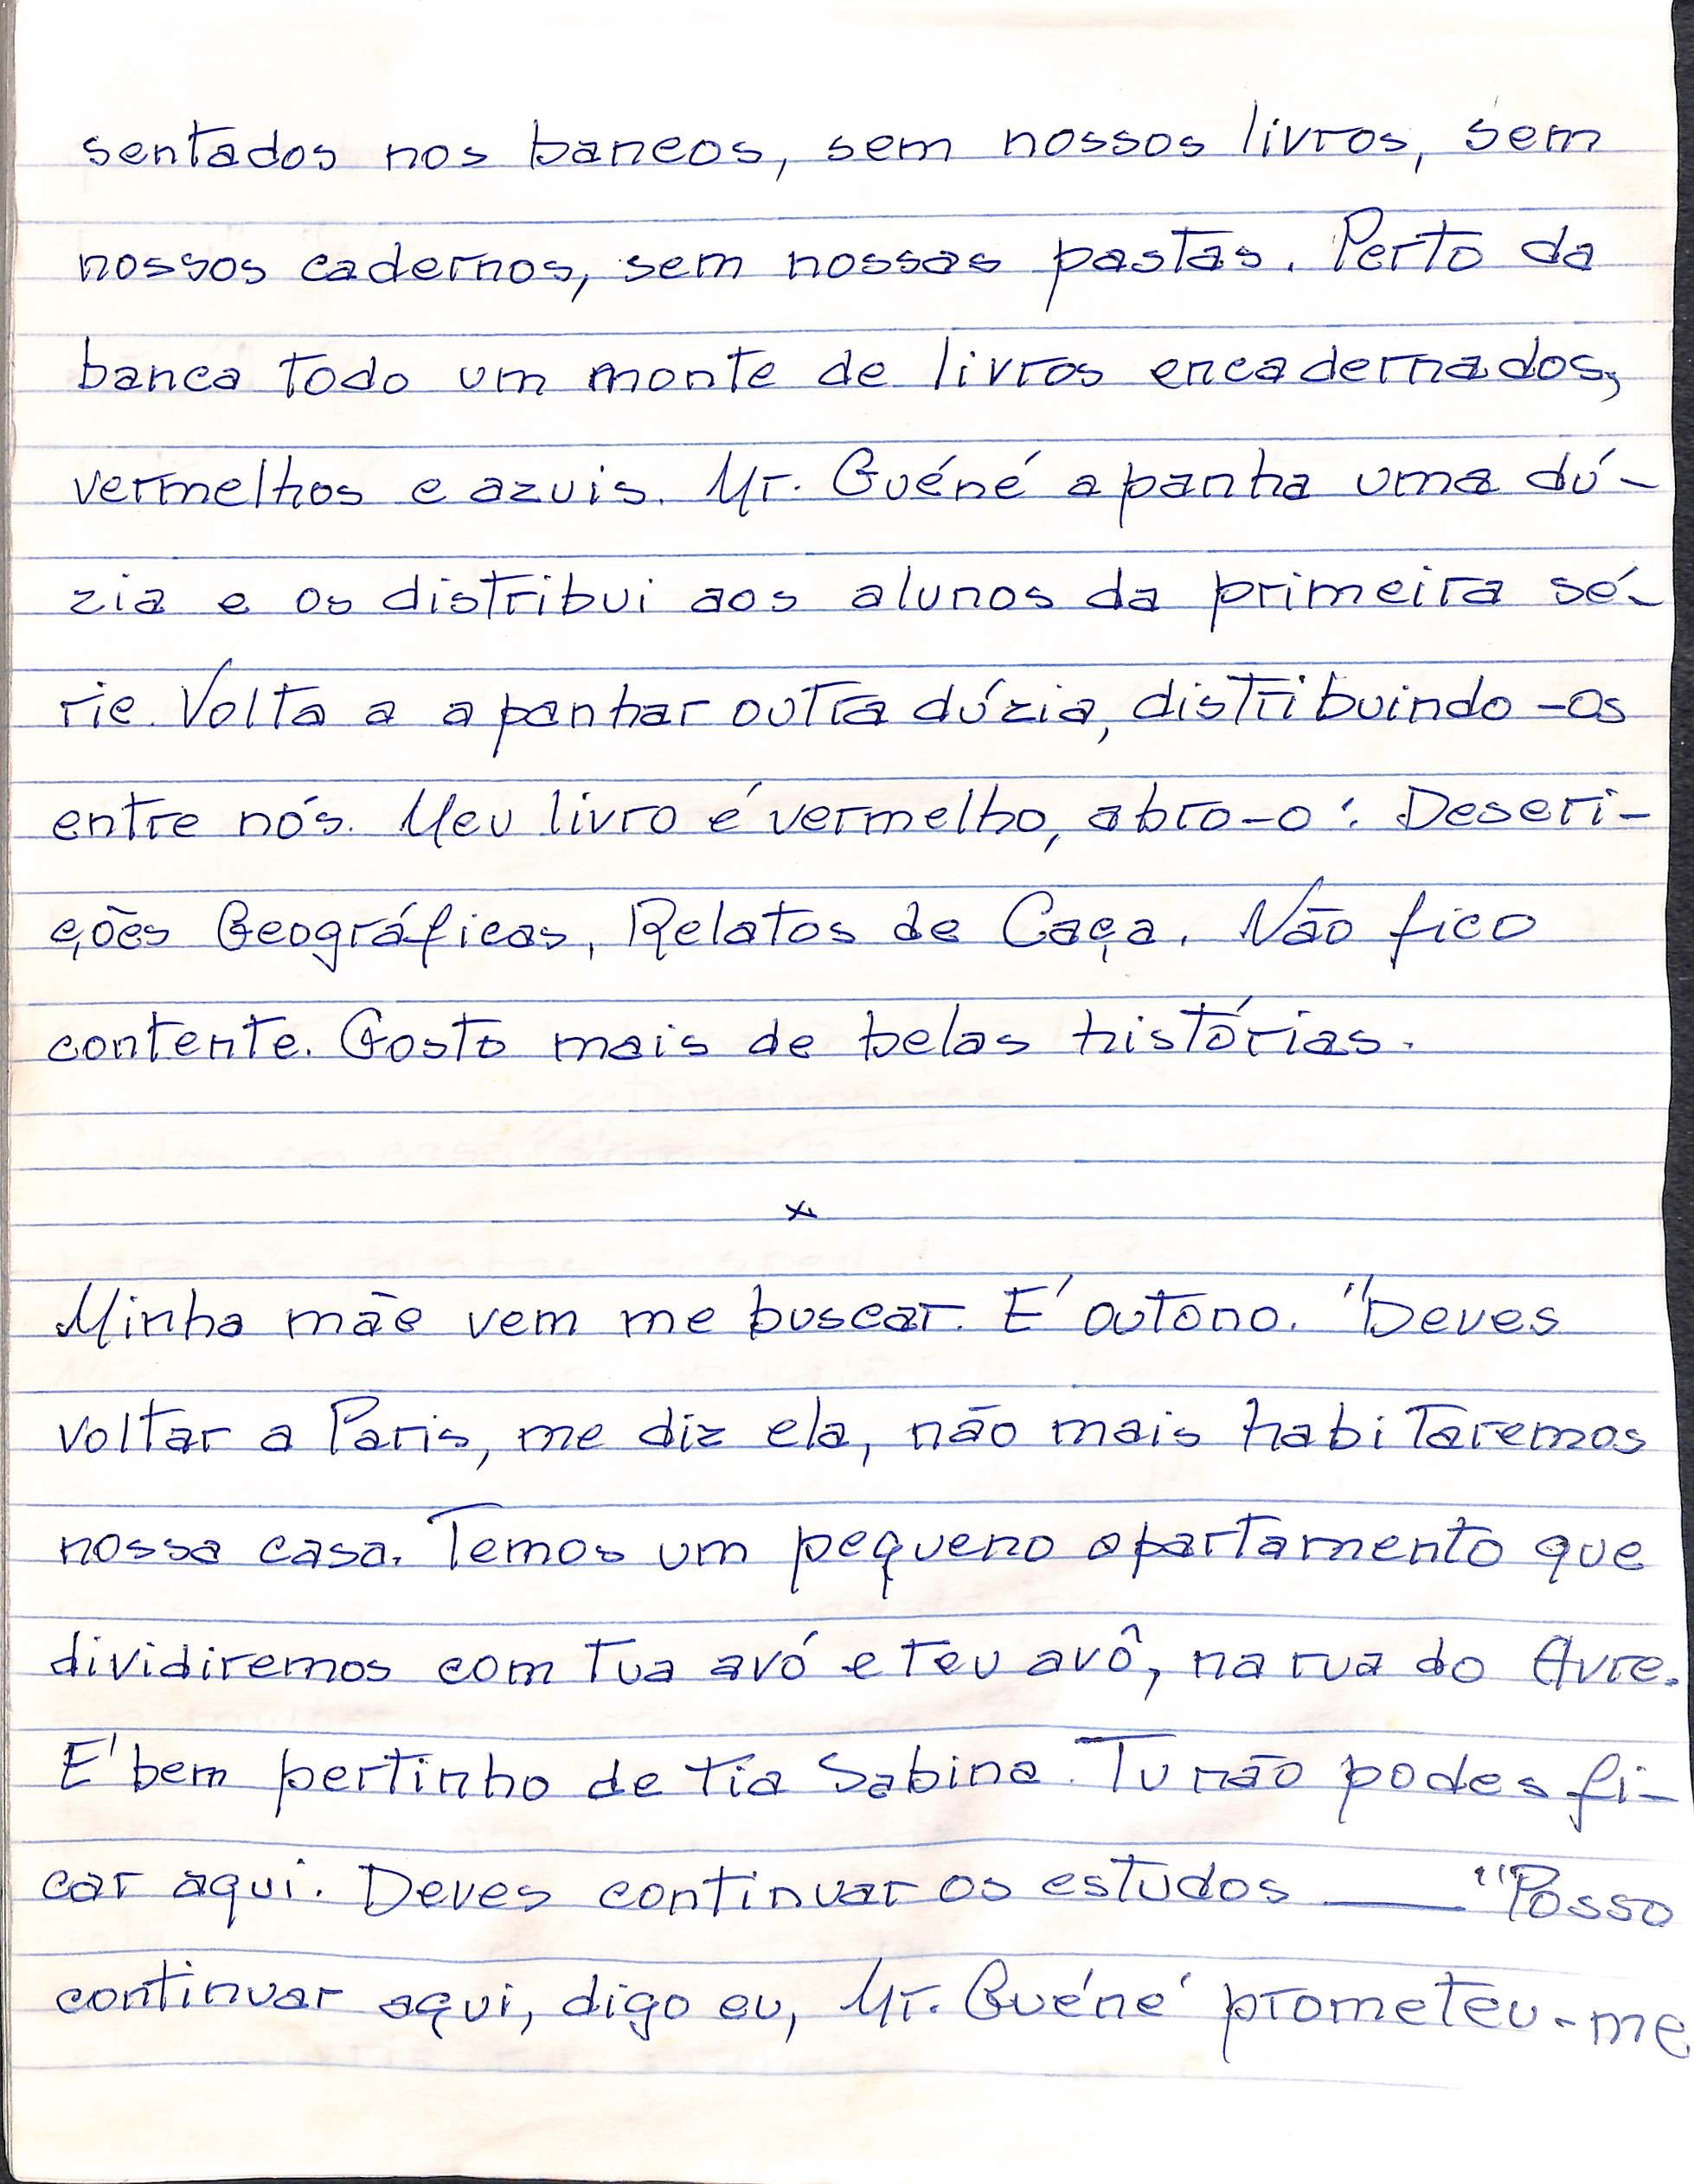 sentados nos bancos, sem nossos livros, sem
nossos cadernos, sem nossas pastas. Perto da
banca todo um monte de livros encadernados,
vermelhos e azuis. Mr. Guéné apanha uma dú-
zia e os distribui aos alunos da primeira sé-
rie. Volta a apanhar outra dúzia, distribuindo-os
entre nós. Meu livro é vermelho, abro-o: Descri-
ções Geográficas, Relatos de Caça. Não fico
contente. Gosto mais de belas histórias.
x
Minha mãe vem me buscar. É outono. "Deves
voltar a Paris, me diz ela, não mais habitaremos
nossa casa. Temos um pequeno apartamento que
dividiremos com tua avó e teu avô, na rua do Avre.
É bem pertinho de tia Sabina. Tu não podes fi-
car aqui. Deves continuar os estudos — "Posso
continuar aqui, digo eu, Mr. Guéné prometeu-me